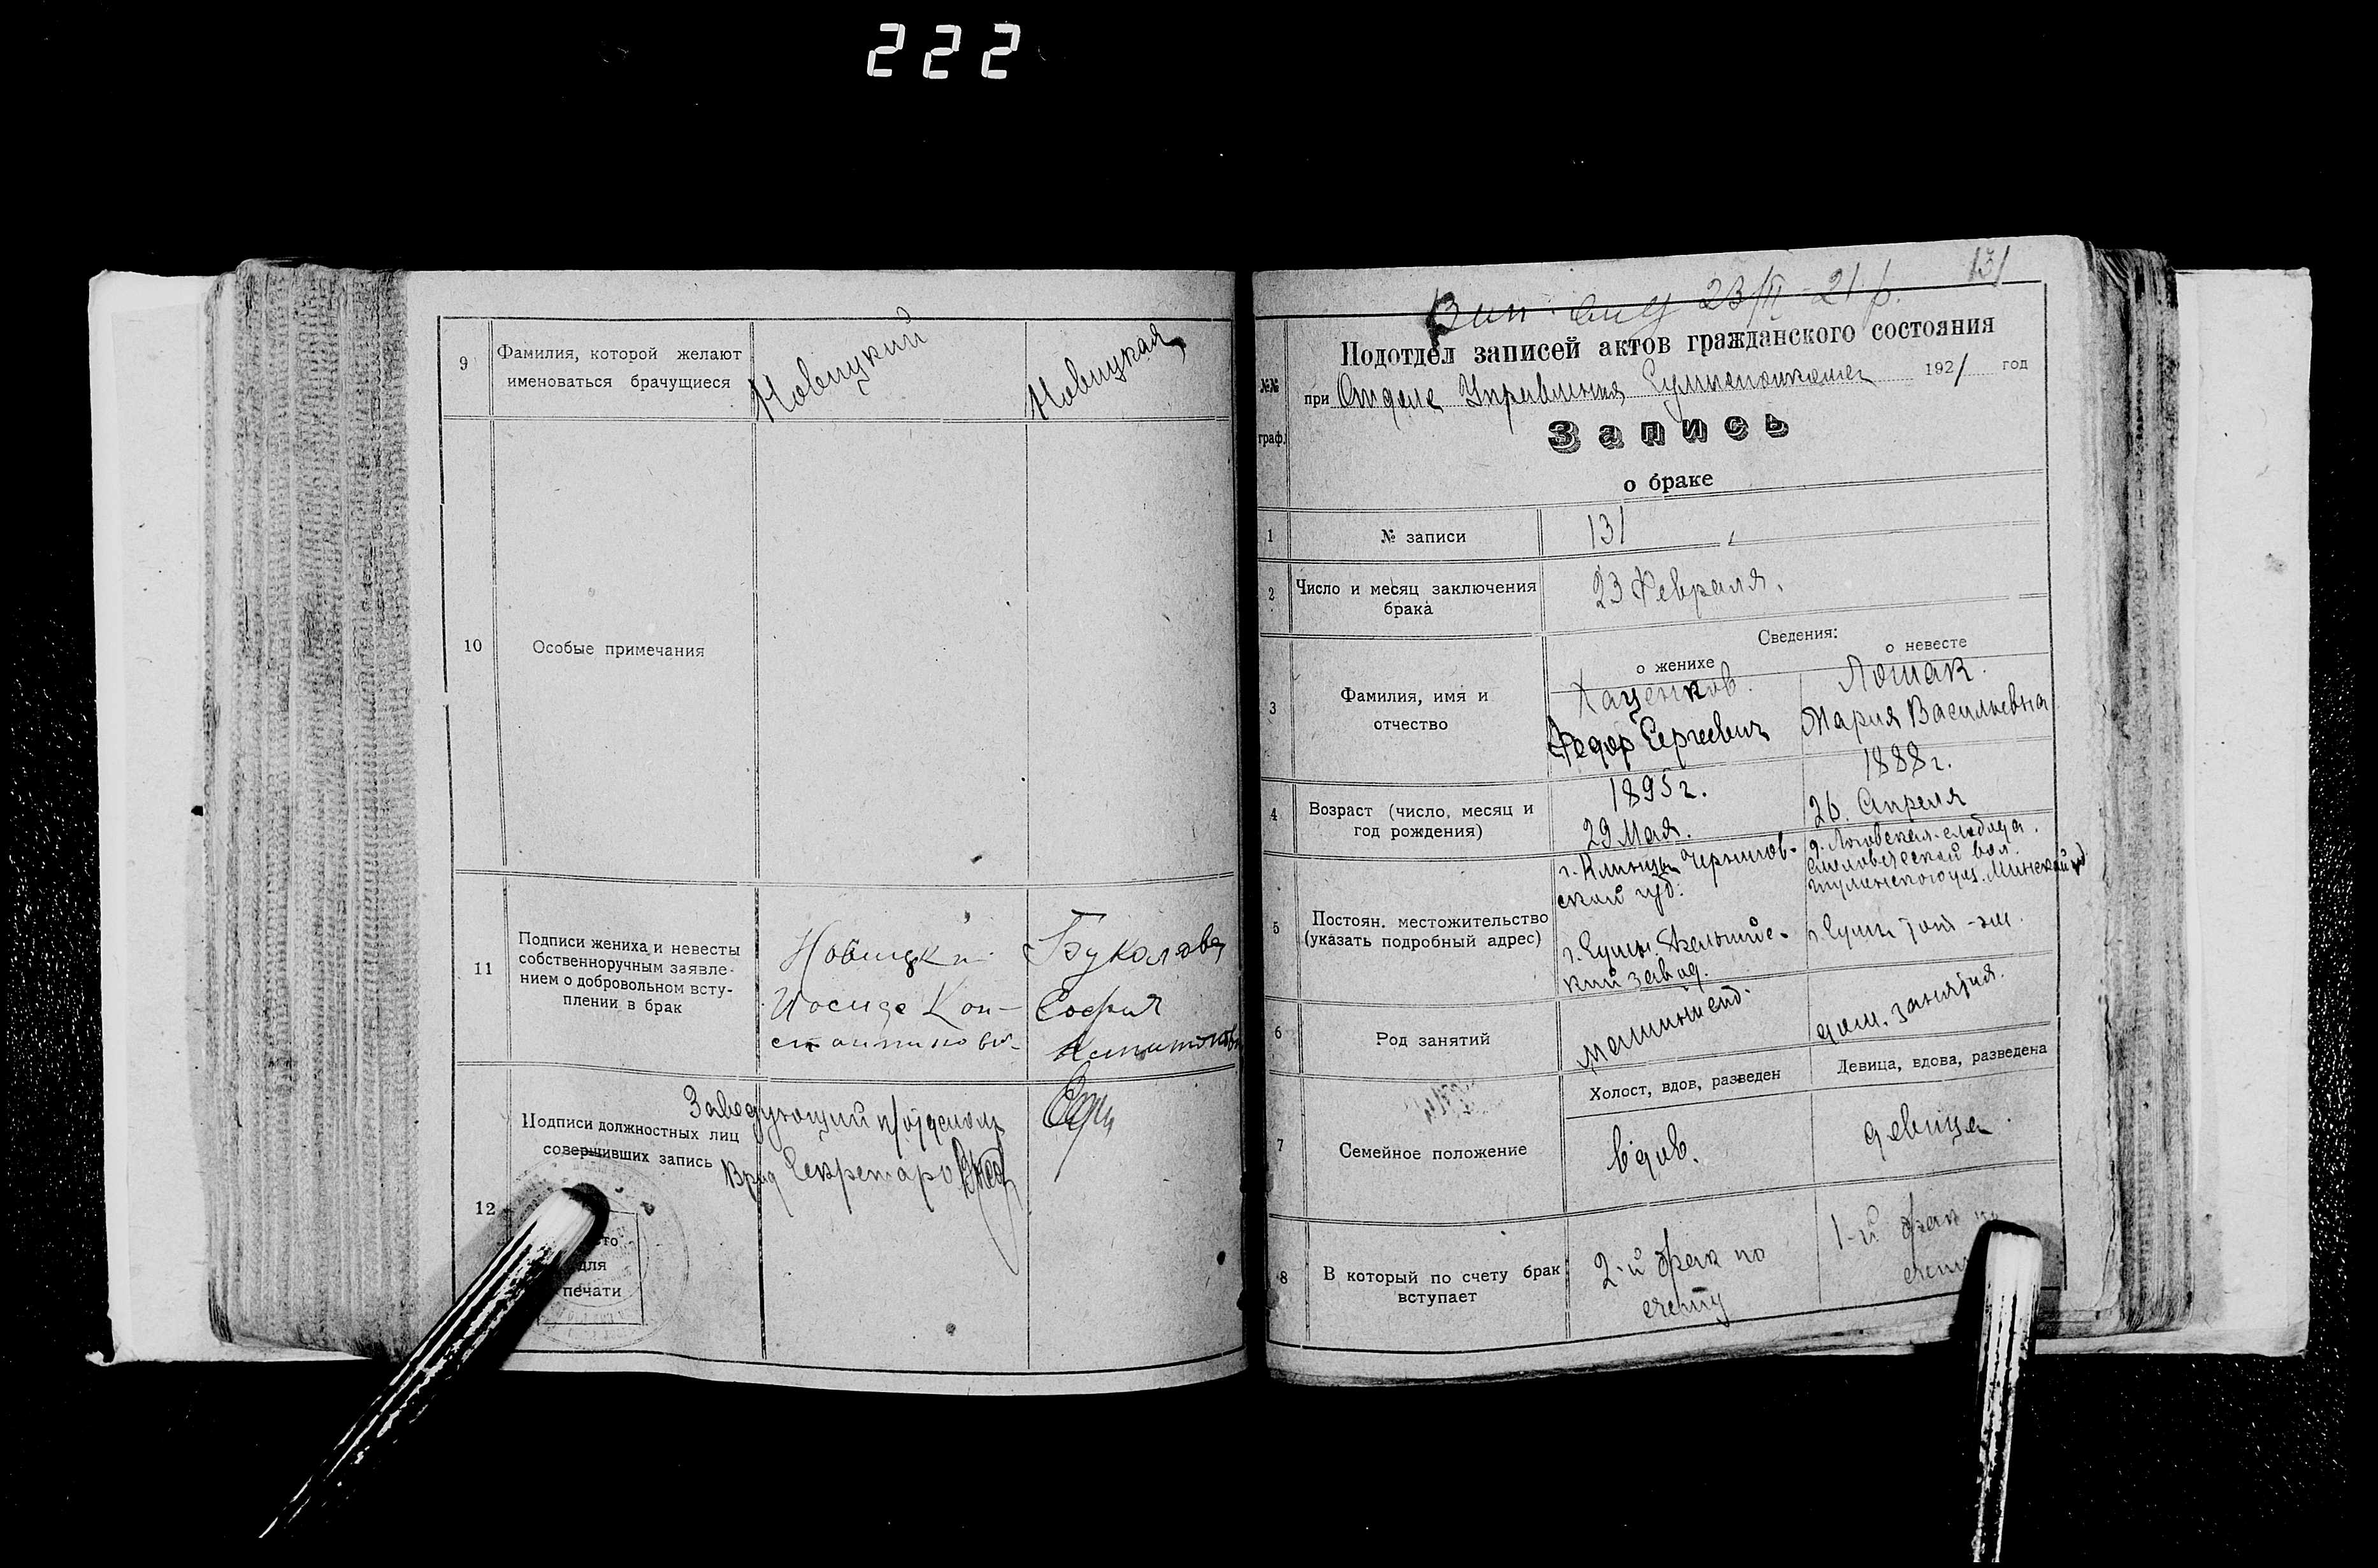 222
9
Фамилия, которой желают
именоваться брачущиеся
Новицкий
Новицкая
10
Особые примечания
11
Подписи жениха и невесты
собственноручным заявле-
нием о добровольном всту-
плении в брак
Новицки
Иосиф Кон-
стантинов
Букалова
София
12
Подписи должностных лиц
совершивших запись
Заведующий п/отделом
Врид Секретаро
для
печати
131
23/II-21 р.
Подотдел записей актов гражданского состояния
№№
граф.
при Отделе Управления 1921 год
Запись
о браке
1
№ записи
131
2
Число и месяц заключения
брака
23 Февраля.
Сведения:
о женихе
о невесте
3
Фамилия, имя и
отчество
Хаценков.
Федор Сергеевич
Лошак.
Мария Васильевна
4
Возраст (число, месяц и
год рождения)
1895 г.
29 Мая.
1888 г.
26. Апреля
5
Постоян. местожительство
(указать подробный адрес)
г. Клинцы Чернигов-
ской губ.
кий завод.
слобода.
вол.
Минской
6
Род занятий
дом. занятия.
7
Семейное положение
Холост, вдов, разведен
Девица, вдова, разведена
вдов.
девица
8
В который по счету брак
вступает
2-й брак по
счету
1-й брак